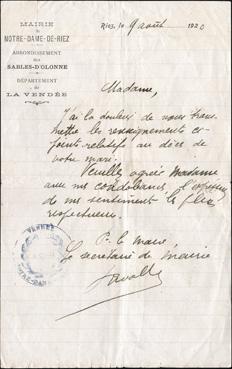 MAIRIE
DE
NOTRE-DAME-DE-RIEZ
ARRONDISSEMENT
DES
SABLES-D'OLONNE
DÉPARTEMENT
DE
LA VENDÉE
Riez, le 9 août 1920
Madame,
J'ai la douleur de vous trans-
mettre les renseignements ci-
joints relatifs au décès de
votre mari.
Veuillez agréer Madame
avec mes condoléances, l'expression
de mes sentiments les plus
respectueux.
P. le maire
Le secrétaire de mairie